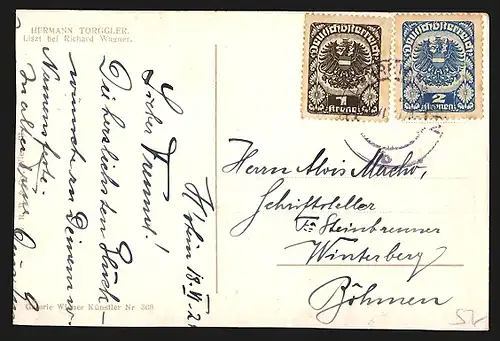 HERMANN TORGGLER.
Liszt bei Richard Wagner.
Deutschösterreich
1
Kronen
Deutschösterreich
2
Kronen
18. VI. 2
Lieber Freund!
Die herzlichsten Glück-
wünsche zu Deinem w.
Namensfeste.
In alter Treue
Herrn Alois Macho,
Schriftsteller
Fa Steinbrenner
Winterberg
Böhmen
Galerie Wiener Künstler Nr 368